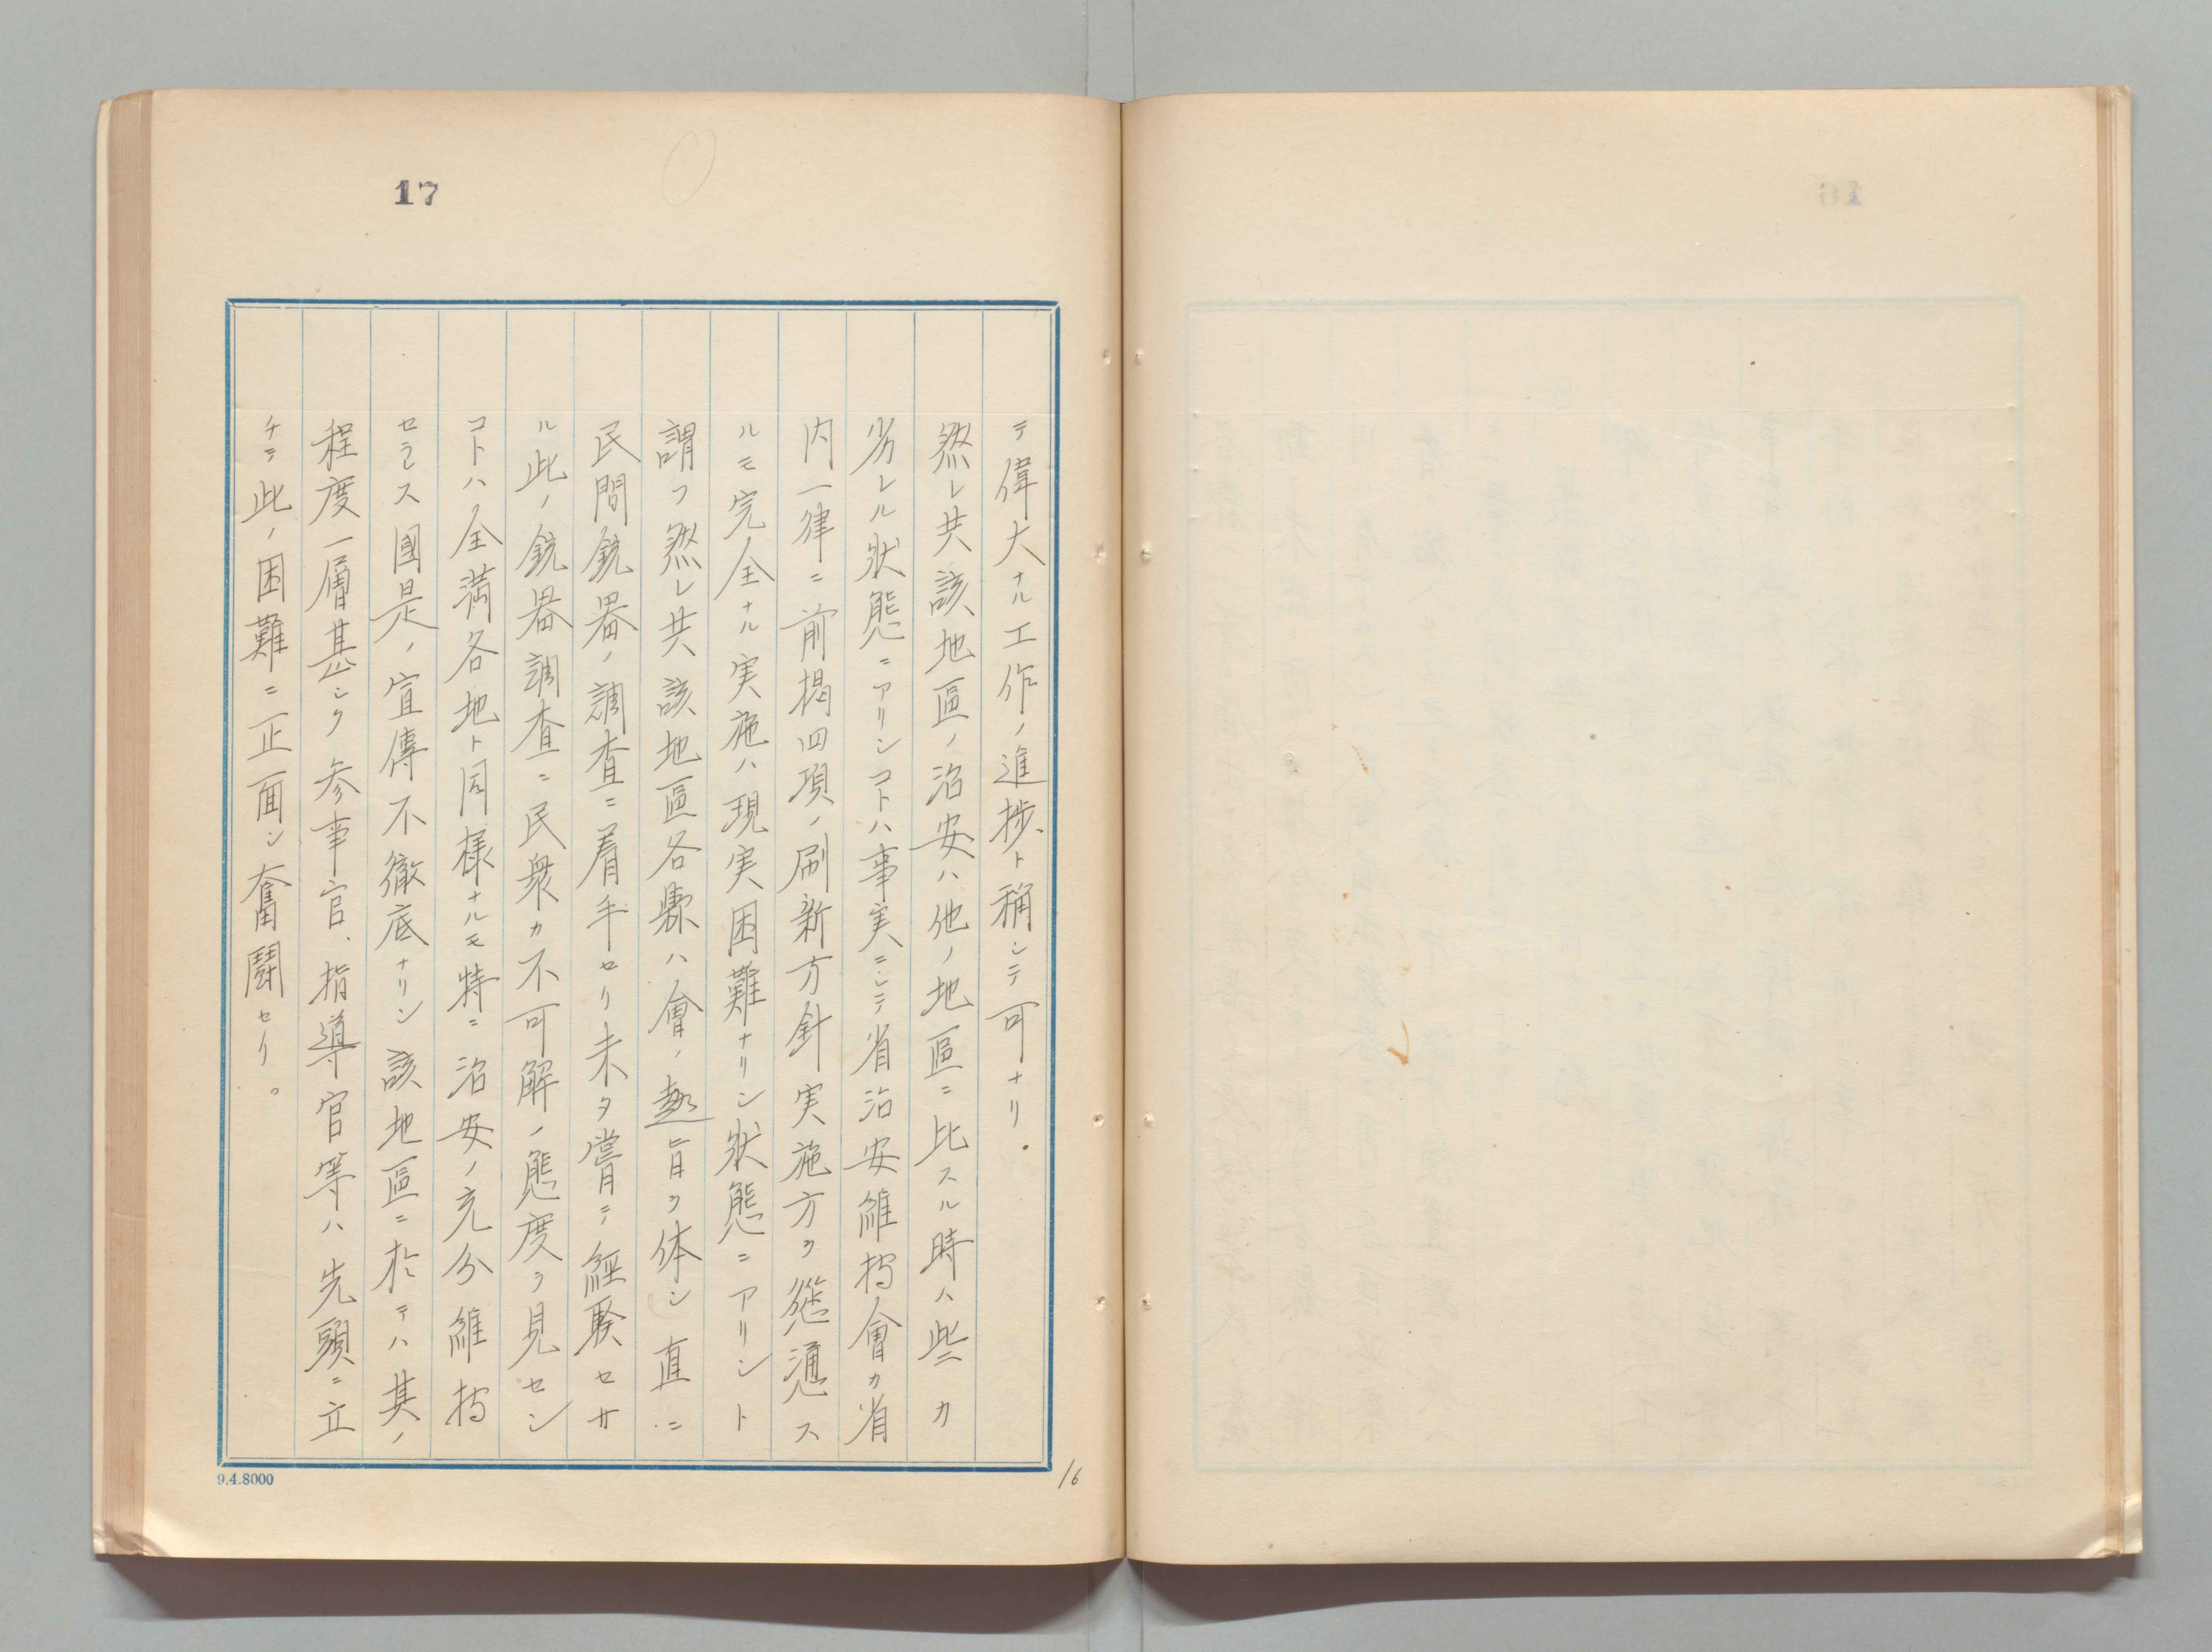 17
テ偉大ナル工作ノ進捗ト稱シテ可ナリ.
然レ共該地區ノ治安ハ他ノ地區ニ比スル時ハ些カ
劣レル狀態ニアリシコトハ事実ニシテ省治安維持會カ省
内一律ニ前揭四項ノ刷新方針実施方ヲ慫慂ス
ルモ完全ナル実施ハ現実困難ナリシ狀態ニアリシト
謂フ然レ共該地區各縣ハ會ノ趣旨ヲ体シ直ニ
民間銃器ノ調査ニ着手セリ未タ嘗テ經驗セサ
ル此ノ銃器調査ニ民衆カ不可解ノ態度ヲ見セシ
コトハ全満各地ト同樣ナルモ特ニ治安ノ充分維持
セラレス國是ノ宣傳不徹底ナリシ該地區ニ於テハ其ノ
程度一層甚シク参事官、指導官等ハ先頭ニ立
チテ此ノ困難ニ正面シ奮鬪セリ。
9.4.8000
16